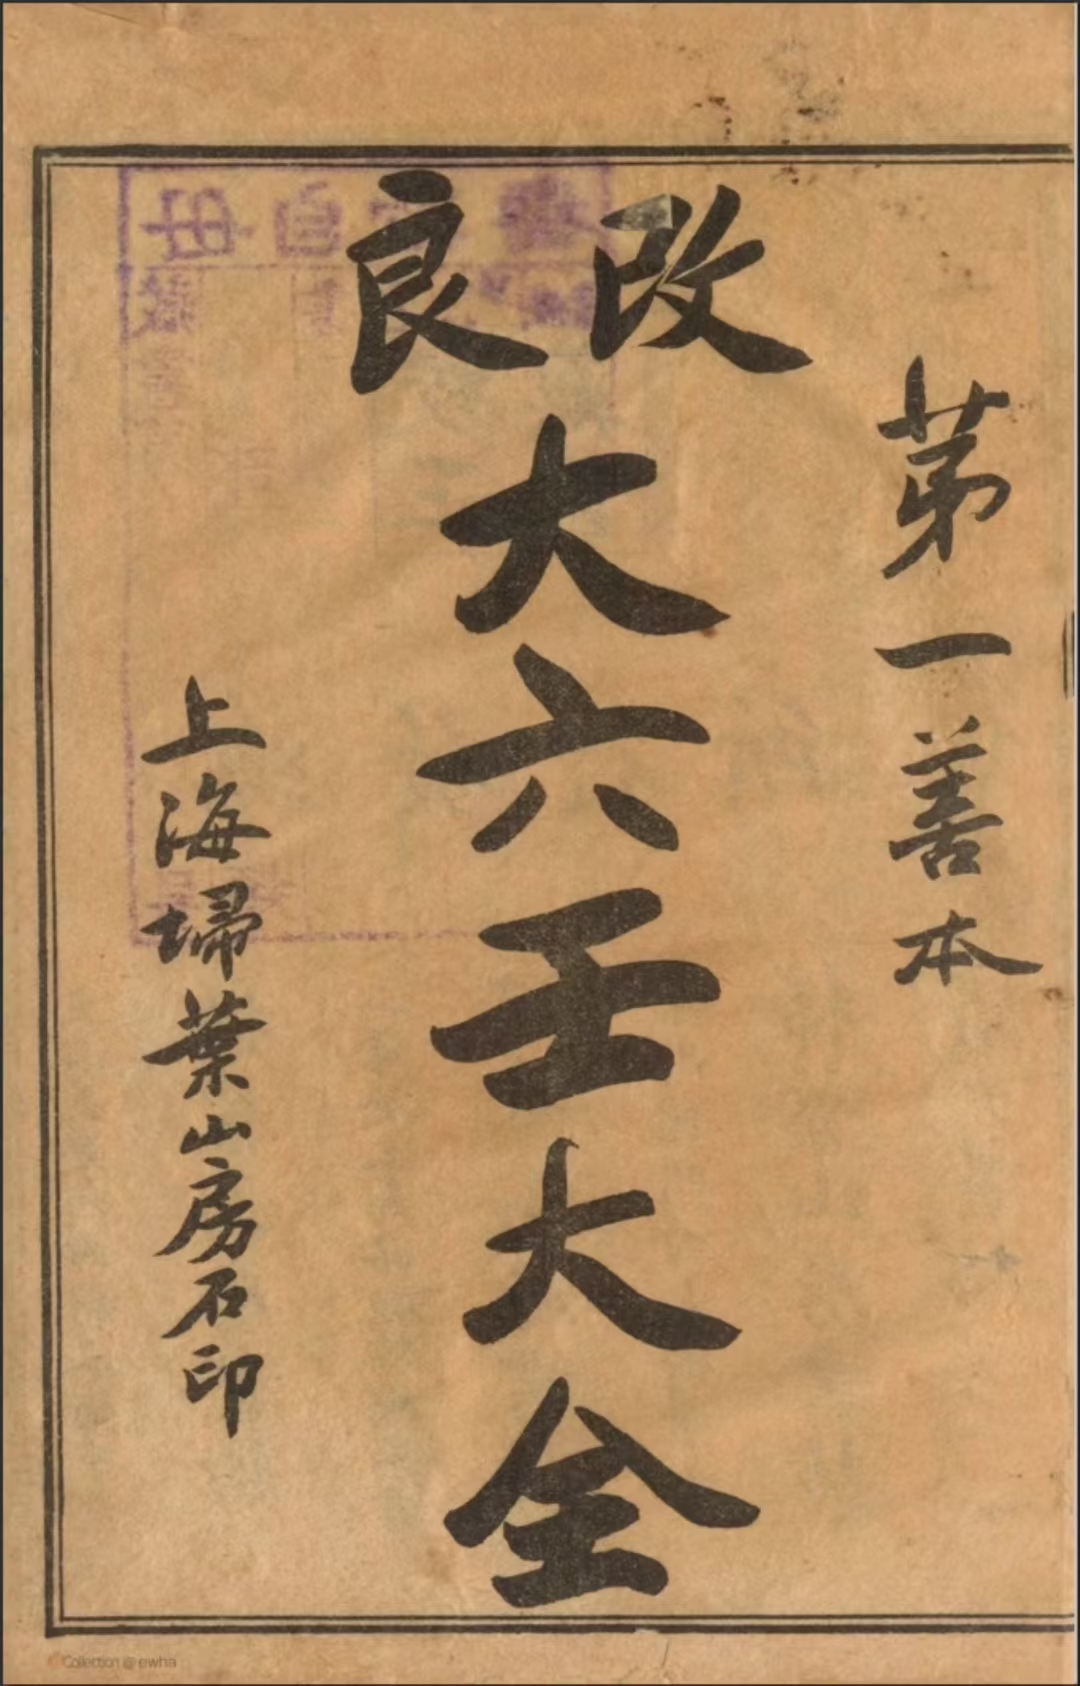 第一善本
改良
大六壬大全
上海埽葉山房石印
Collection @ ewha